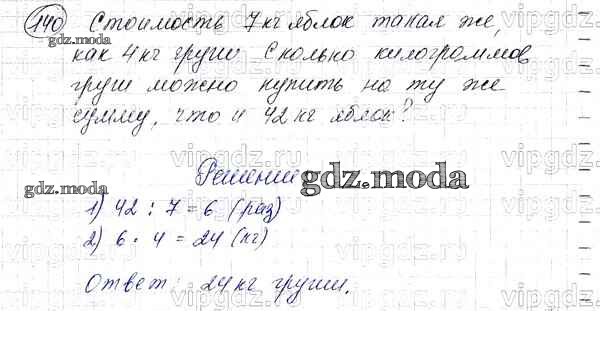 140) Стоимость 7 кг яблок такая же,
как 4 кг груши. Сколько килограммов
груш можно купить на ту же
сумму, что и 42 кг яблок?
Решение
1) 42 : 7 = 6 (раз)
2) 6 · 4 = 24 (кг)
Ответ: 24 кг груши.
gdz.moda
gdz.moda
gdz.moda
vipgdz.ru